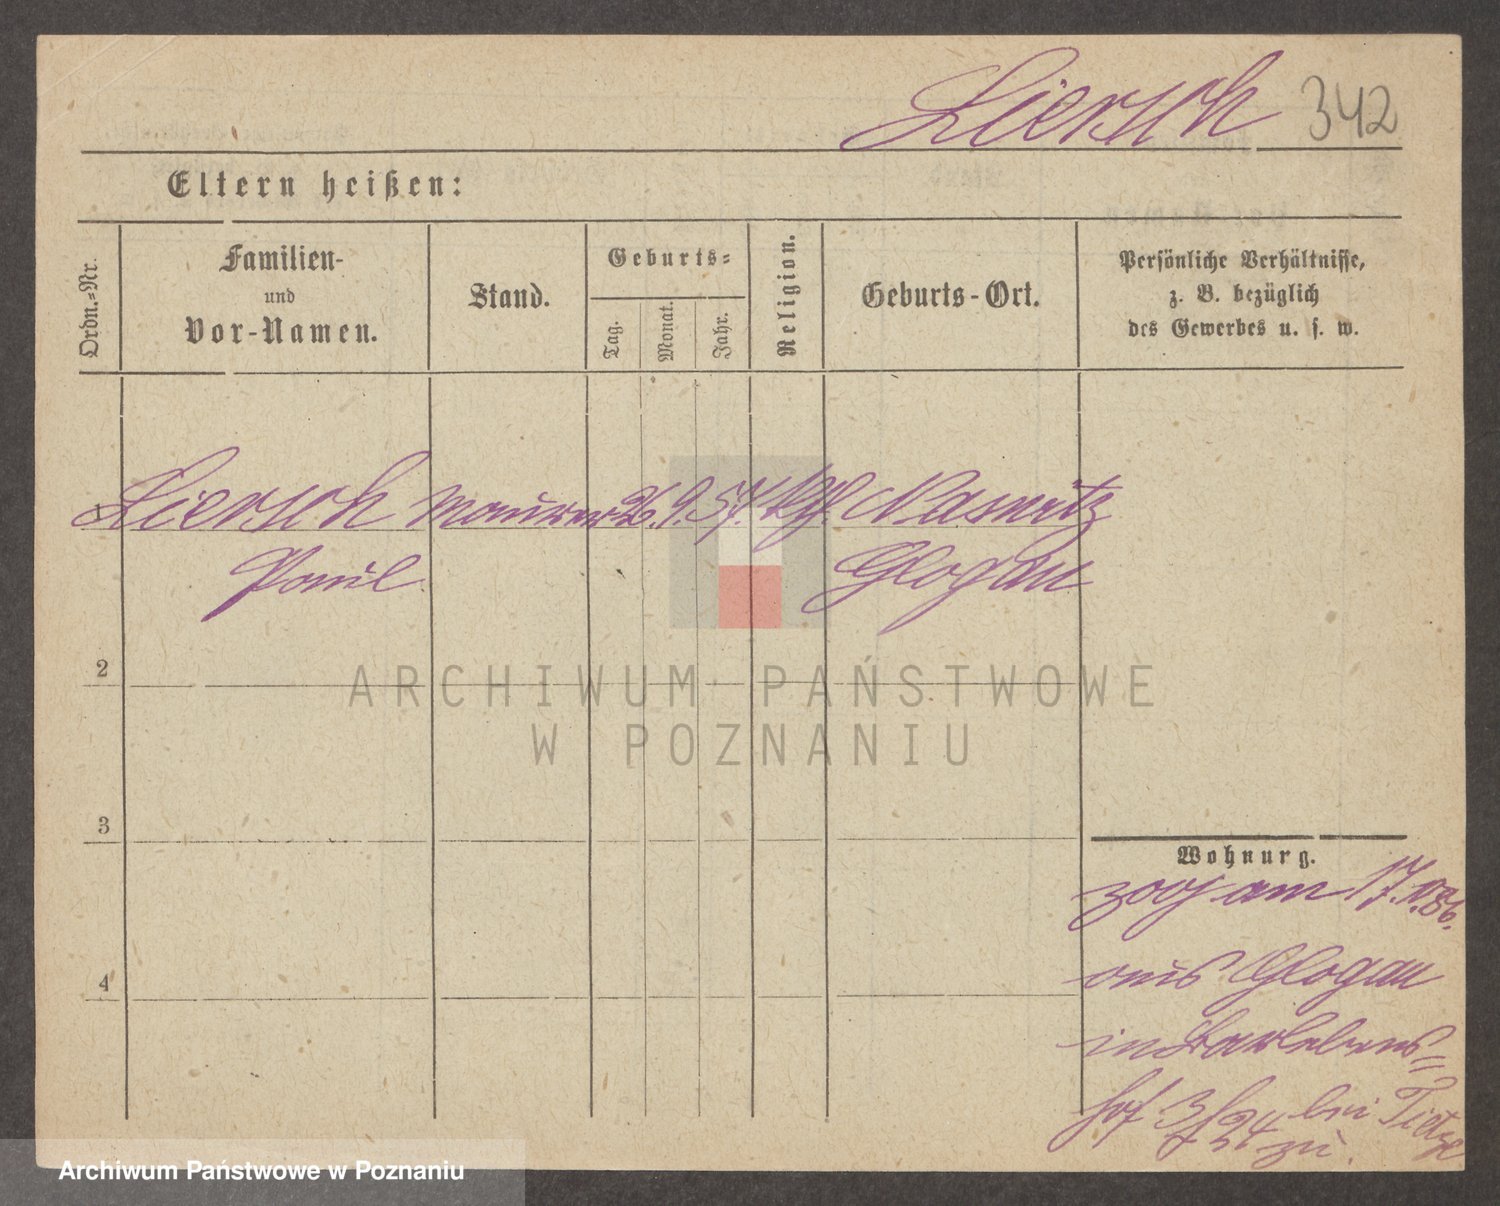 Liersch 342
Eltern heißen:
Ordn.=Nr.
Familien-
und
Vor-Namen.
Stand.
Geburts=
Tag.
Monat.
Jahr.
Religion.
Geburts-Ort.
Persönliche Verhältnisse,
z. B. bezüglich
des Gewerbes u. s. w.
1 Liersch Maurer 26. 9. 57.
Paul Glogau
2
ARCHIWUM PAŃSTWOWE
W POZNANIU
3
Wohnurg.
zog am 17.
aus Glogau
in
hof 3/24 bei Tietze
zu.
4
Archiwum Państwowe w Poznaniu